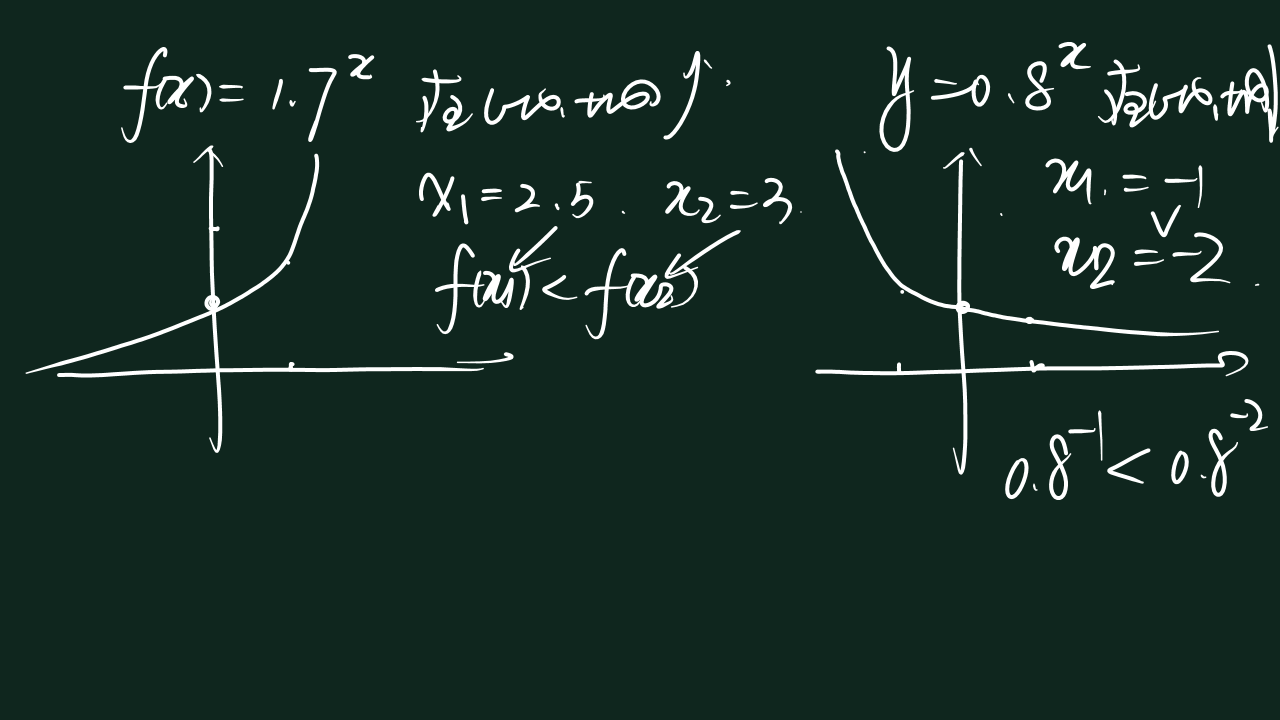 f(x) = 1.7^x 在(-∞,+∞)↗.
x₁ = 2.5 . x₂ = 3.
f(x₁) < f(x₂)
y = 0.8^x 在(-∞,+∞)
x₁. = -1
∨
x₂ = -2 .
0.8^-1 < 0.8^-2